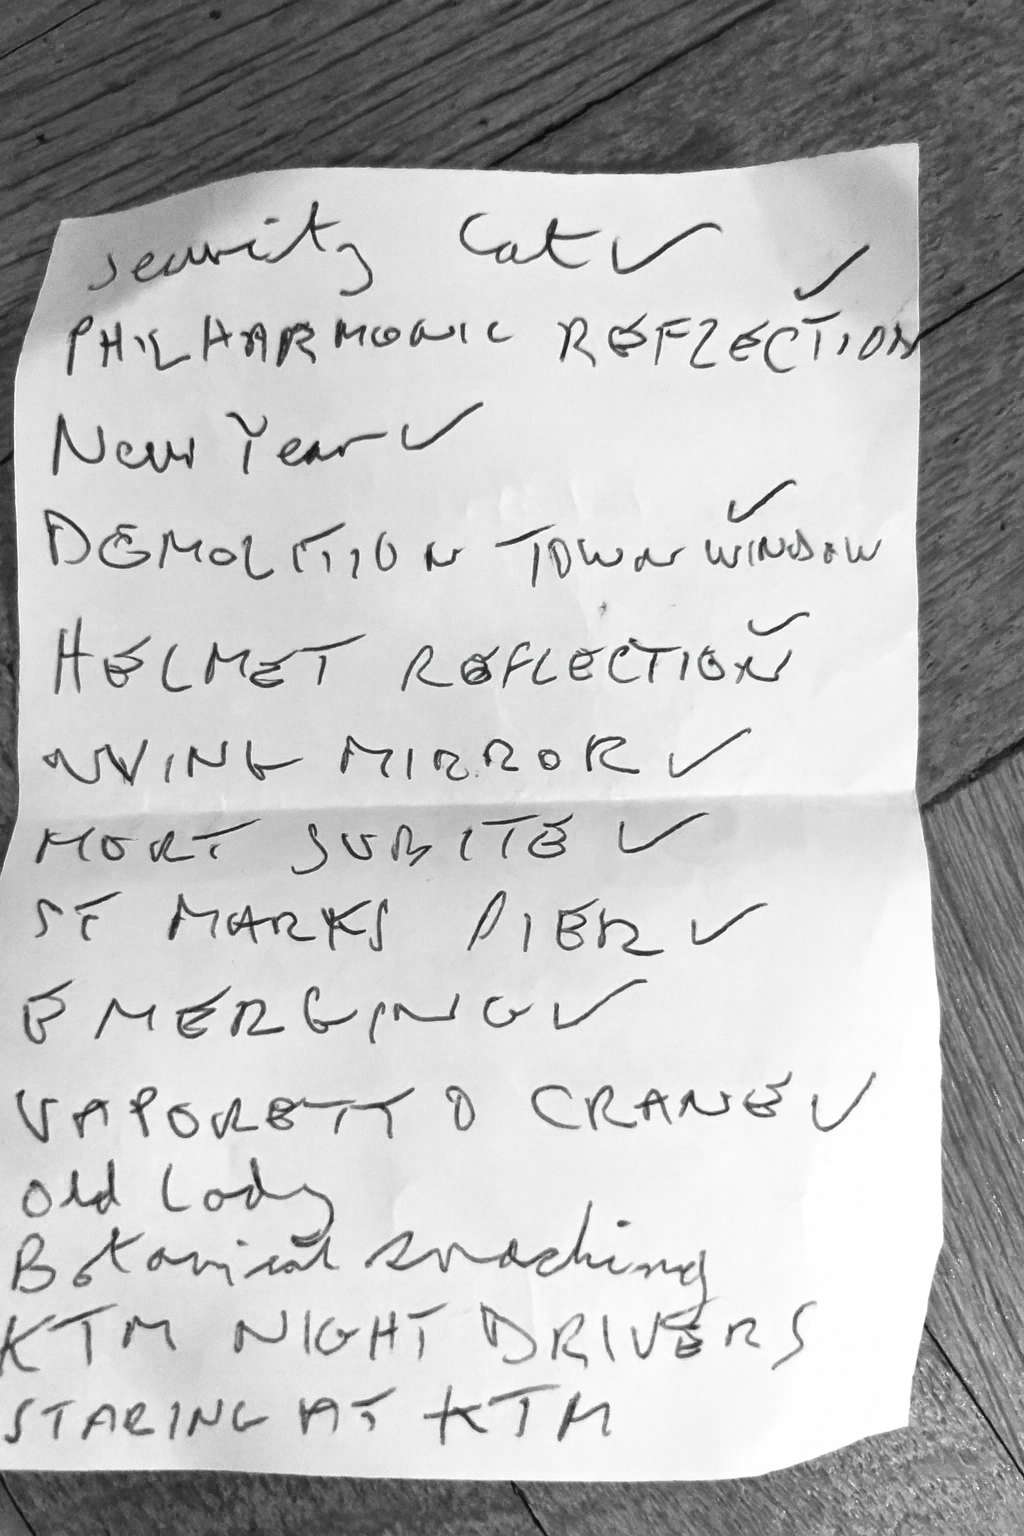 Security Cat ✓
PHILHARMONIC REFLECTION ✓
New Year ✓
DEMOLITION TOWN WINDOW ✓
HELMET REFLECTION ✓
WING MIRROR ✓
MORT SUBITE ✓
ST MARKS PIER ✓
EMERGING ✓
VAPORETTO CRANE ✓
Old Lady
Botanical
KTM NIGHT DRIVERS
STARING AT KTM